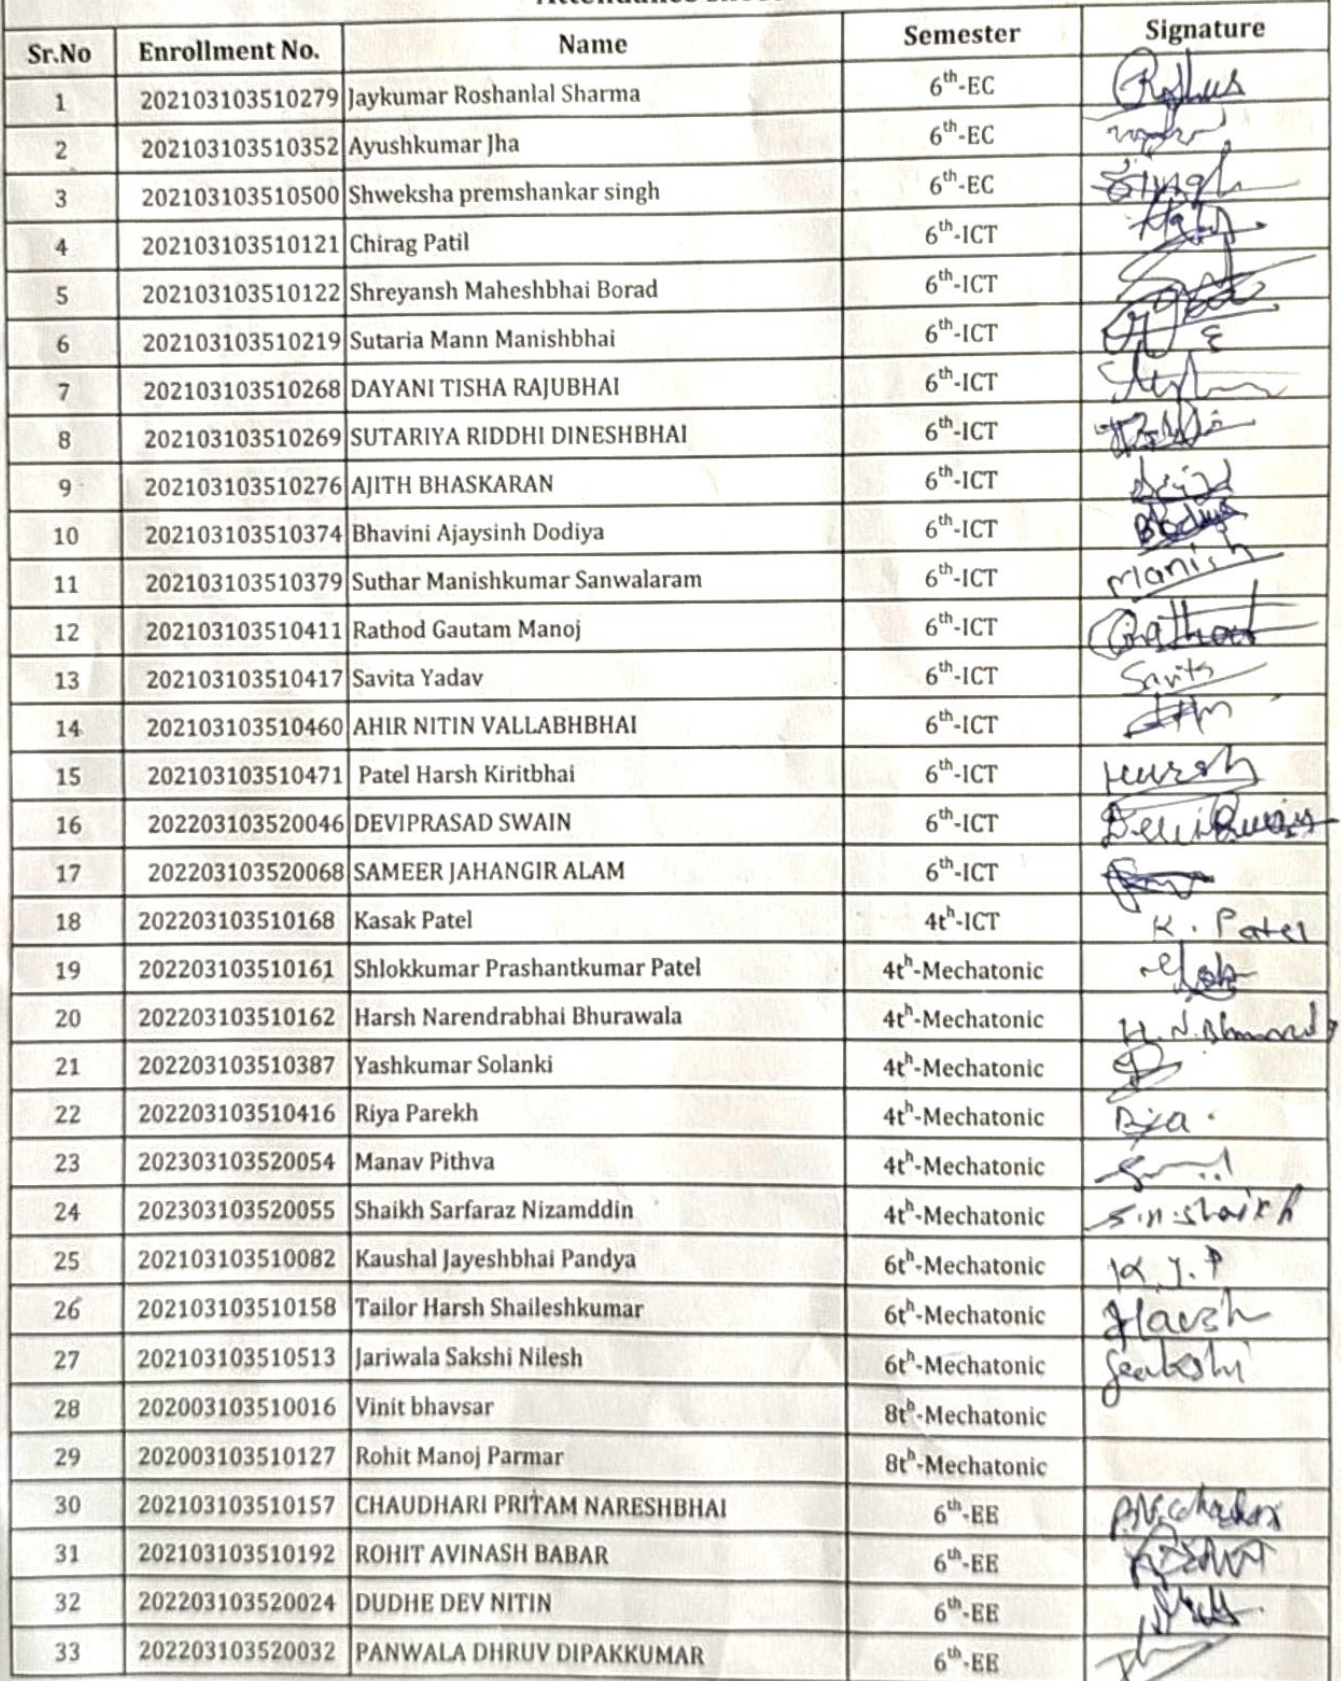 Sr.No Enrollment No. Name Semester Signature
1 202103103510279 Jaykumar Roshanlal Sharma 6th-EC
2 202103103510352 Ayushkumar Jha 6th-EC
3 202103103510500 Shweksha premshankar singh 6th-EC Singh
4 202103103510121 Chirag Patil 6th-ICT
5 202103103510122 Shreyansh Maheshbhai Borad 6th-ICT
6 202103103510219 Sutaria Mann Manishbhai 6th-ICT
7 202103103510268 DAYANI TISHA RAJUBHAI 6th-ICT
8 202103103510269 SUTARIYA RIDDHI DINESHBHAI 6th-ICT
9 202103103510276 AJITH BHASKARAN 6th-ICT
10 202103103510374 Bhavini Ajaysinh Dodiya 6th-ICT
11 202103103510379 Suthar Manishkumar Sanwalaram 6th-ICT Manish
12 202103103510411 Rathod Gautam Manoj 6th-ICT
13 202103103510417 Savita Yadav 6th-ICT Savita
14 202103103510460 AHIR NITIN VALLABHBHAI 6th-ICT
15 202103103510471 Patel Harsh Kiritbhai 6th-ICT Harsh
16 202203103520046 DEVIPRASAD SWAIN 6th-ICT
17 202203103520068 SAMEER JAHANGIR ALAM 6th-ICT
18 202203103510168 Kasak Patel 4th-ICT K. Patel
19 202203103510161 Shlokkumar Prashantkumar Patel 4th-Mechatonic
20 202203103510162 Harsh Narendrabhai Bhurawala 4th-Mechatonic
21 202203103510387 Yashkumar Solanki 4th-Mechatonic
22 202203103510416 Riya Parekh 4th-Mechatonic Riya
23 202303103520054 Manav Pithva 4th-Mechatonic
24 202303103520055 Shaikh Sarfaraz Nizamddin 4th-Mechatonic S.n.shaikh
25 202103103510082 Kaushal Jayeshbhai Pandya 6th-Mechatonic K.J.P
26 202103103510158 Tailor Harsh Shaileshkumar 6th-Mechatonic Harsh
27 202103103510513 Jariwala Sakshi Nilesh 6th-Mechatonic Sakshi
28 202003103510016 Vinit bhavsar 8th-Mechatonic
29 202003103510127 Rohit Manoj Parmar 8th-Mechatonic
30 202103103510157 CHAUDHARI PRITAM NARESHBHAI 6th-EE
31 202103103510192 ROHIT AVINASH BABAR 6th-EE
32 202203103520024 DUDHE DEV NITIN 6th-EE
33 202203103520032 PANWALA DHRUV DIPAKKUMAR 6th-EE